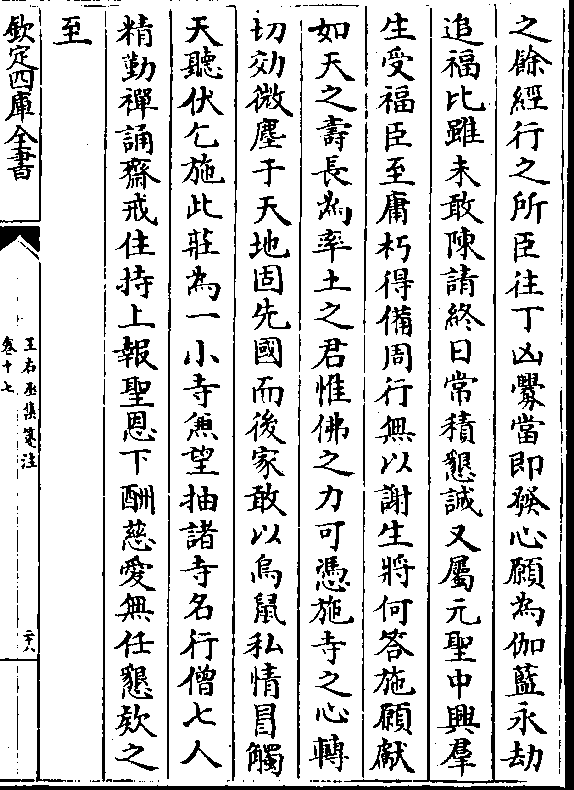 之餘經行之所臣往丁凶釁當即發心願為伽藍永劫
追福比雖未敢陳請終日常積懇誠又屬元聖中興羣
生受福臣至庸朽得備周行無以謝生將何答施願獻
如天之壽長為率土之君惟佛之力可憑施寺之心轉
切効微塵于天地固先國而後家敢以烏鼠私情冒觸
天聽伏乞施此莊為一小寺兼望抽諸寺名行僧七人
精勤禪誦齋戒住持上報聖恩下酬慈愛無任懇欵之
至
欽定四庫全書
王右丞集箋注
卷十七
二十八